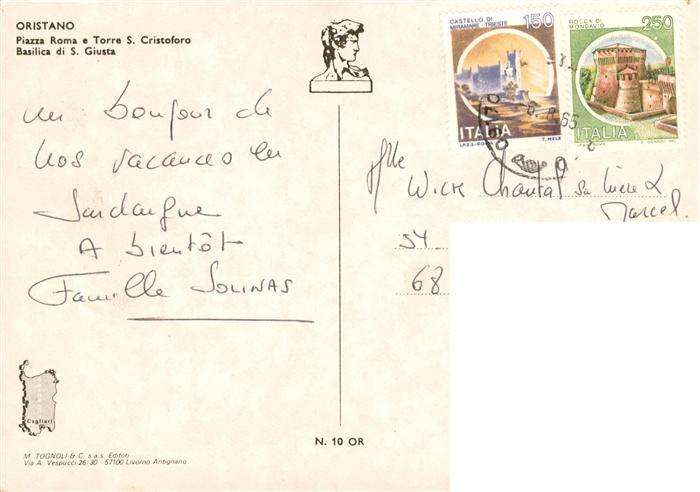 ORISTANO
Piazza Roma e Torre S. Cristoforo
Basilica di S. Giusta
un bonjour de
nos vacances en
Sardaigne
A bientôt
Famille SOLINAS
Cagliari
M. TOGNOLI & C. s.a.s. Editori
Via A. Vespucci 26/30 - 57100 Livorno Antignano
N. 10 OR
CASTELLO DI
MIRAMARE TRIESTE
150
ITALIA
I.P.Z.S.-ROMA
T. MELE
ROCCA DI
MONDAVIO
250
ITALIA
Mlle
WICK Chantal
Marcel
54
68